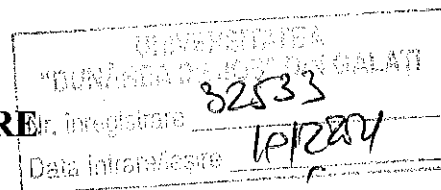 UNIVERSITATEA
"DUNĂREA DE JOS" DIN GALAŢI
RE
Nr. înregistrare 32533
Data intrare/ieşire